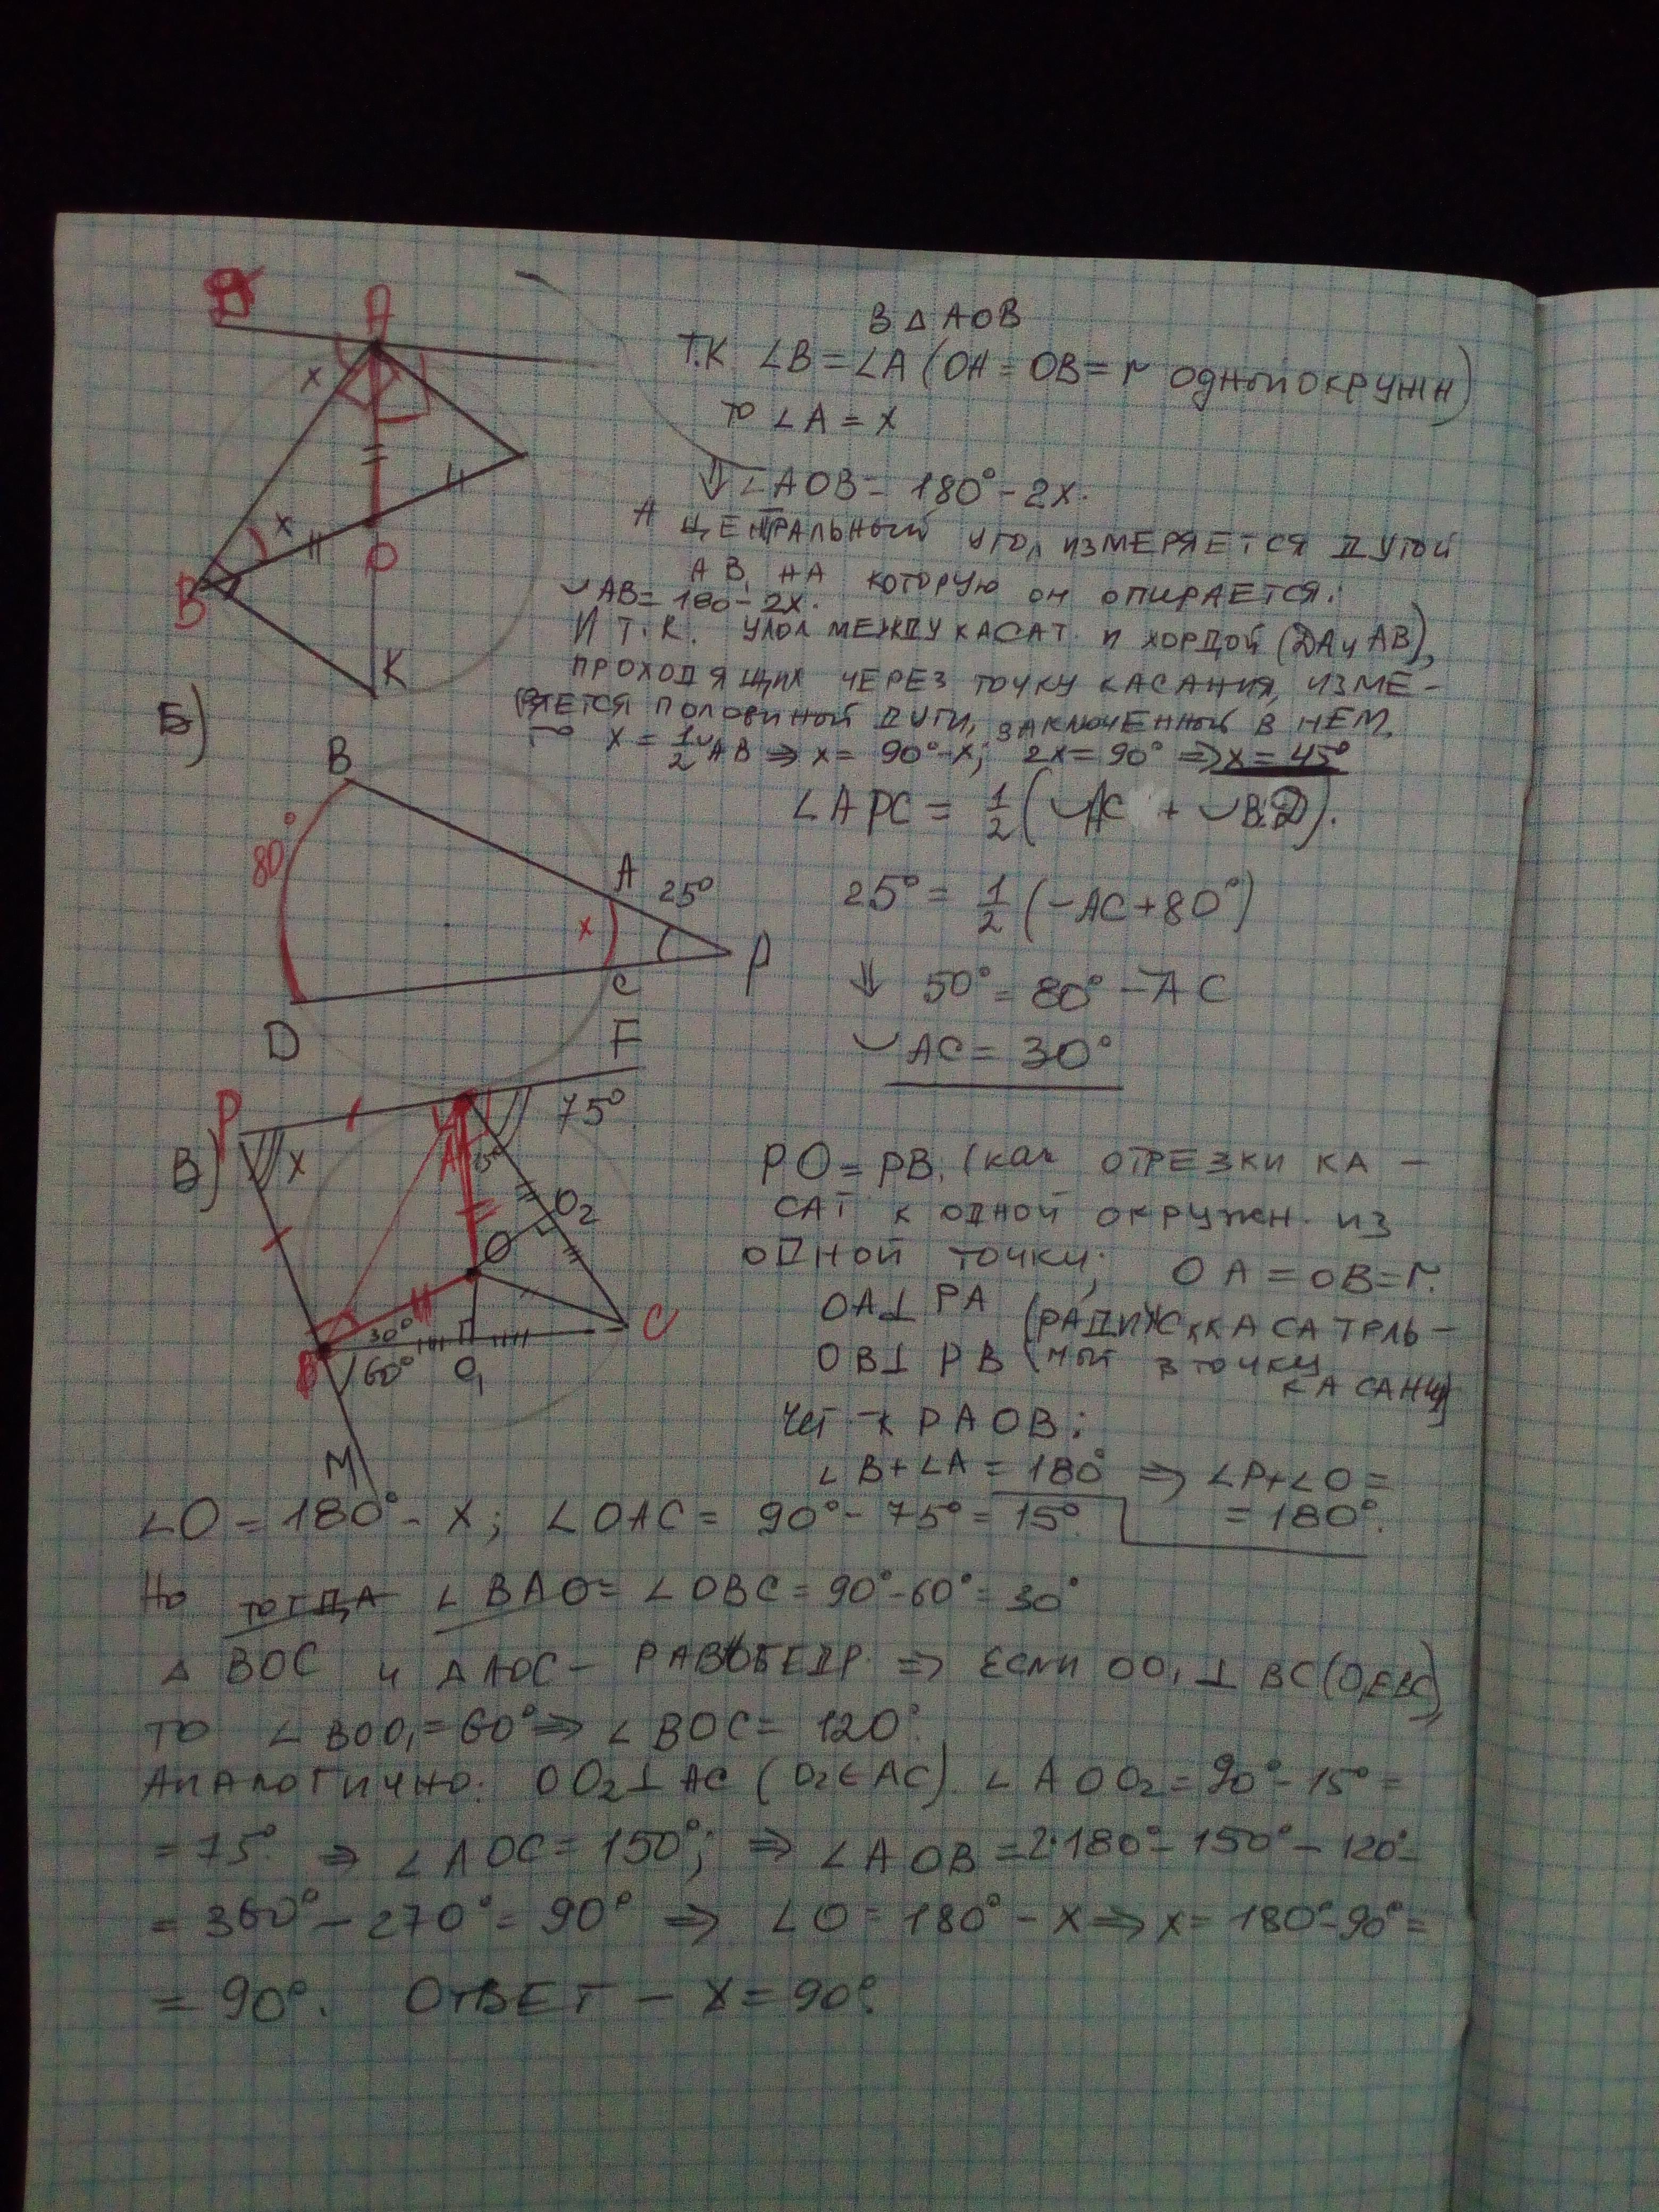 В △ AOB
Т.К ∠B = ∠A (OA = OB = r одной окружн)
то ∠A = x
⇓ ∠AOB = 180° - 2x.
А центральный угол измеряется дугой
AB, на которую он опирается.
◡AB = 180 - 2x.
И т.к. угол между касат. и хордой (DA и AB),
проходящих через точку касания, изме-
ряется половиной дуги, заключенной в нем,
то x = 1/2 ◡AB ⇒ x = 90° - x; 2x = 90° ⇒ x = 45°
D A
x x
B O
K
Б)
∠APC = 1/2 (◡AC + ◡BD).
25° = 1/2 (-AC + 80°)
⇓ 50° = 80° - AC
◡AC = 30°
B
80° A 25°
x P
C
D
В) P F
x A 75°
15° O2
O
30° C
B 60° O1
M
PO = PB, (как отрезки ка-
сат к одной окружн. из
одной точки; OA = OB = r.
OA ⊥ PA (радиус к касатель-
OB ⊥ PB (ной в точку
касания)
Чет-к PAOB:
∠B + ∠A = 180° ⇒ ∠P + ∠O =
= 180°.
∠O = 180° - x; ∠OAC = 90° - 75° = 15°
Но тогда ∠BAO = ∠OBC = 90° - 60° = 30°
△ BOC и △ AOC - равнобедр. ⇒ если OO1 ⊥ BC (O1∈BC),
то ∠BOO1 = 60° ⇒ ∠BOC = 120°.
Аналогично: OO2 ⊥ AC (O2∈AC) ∠AOO2 = 90° - 15° =
= 75° ⇒ ∠AOC = 150°; ⇒ ∠AOB = 2·180° - 150° - 120° =
= 360° - 270° = 90° ⇒ ∠O = 180° - x ⇒ x = 180° - 90° =
= 90°. Ответ - x = 90°.